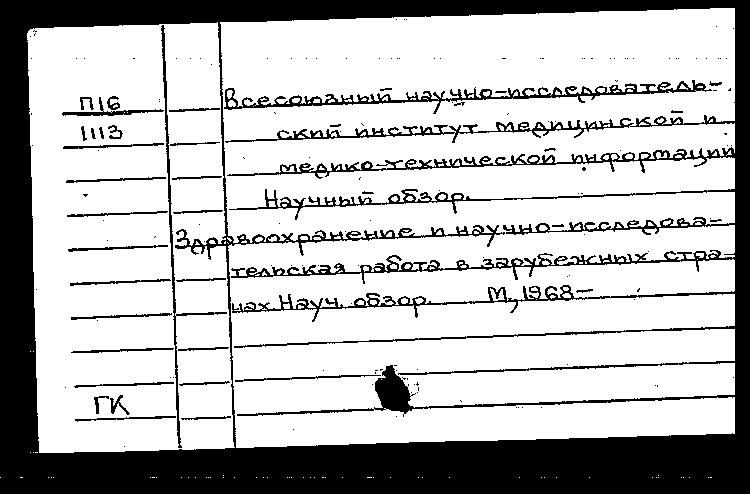 П16 Всесоюзный научно-исследователь-
1113 ский институт медицинской и
медико-технической информаций
Научный обзор.
Здравоохранение и научно-исследова-
тельская работа в зарубежных стра-
нах Науч. обзор. М., 1968-
ГК